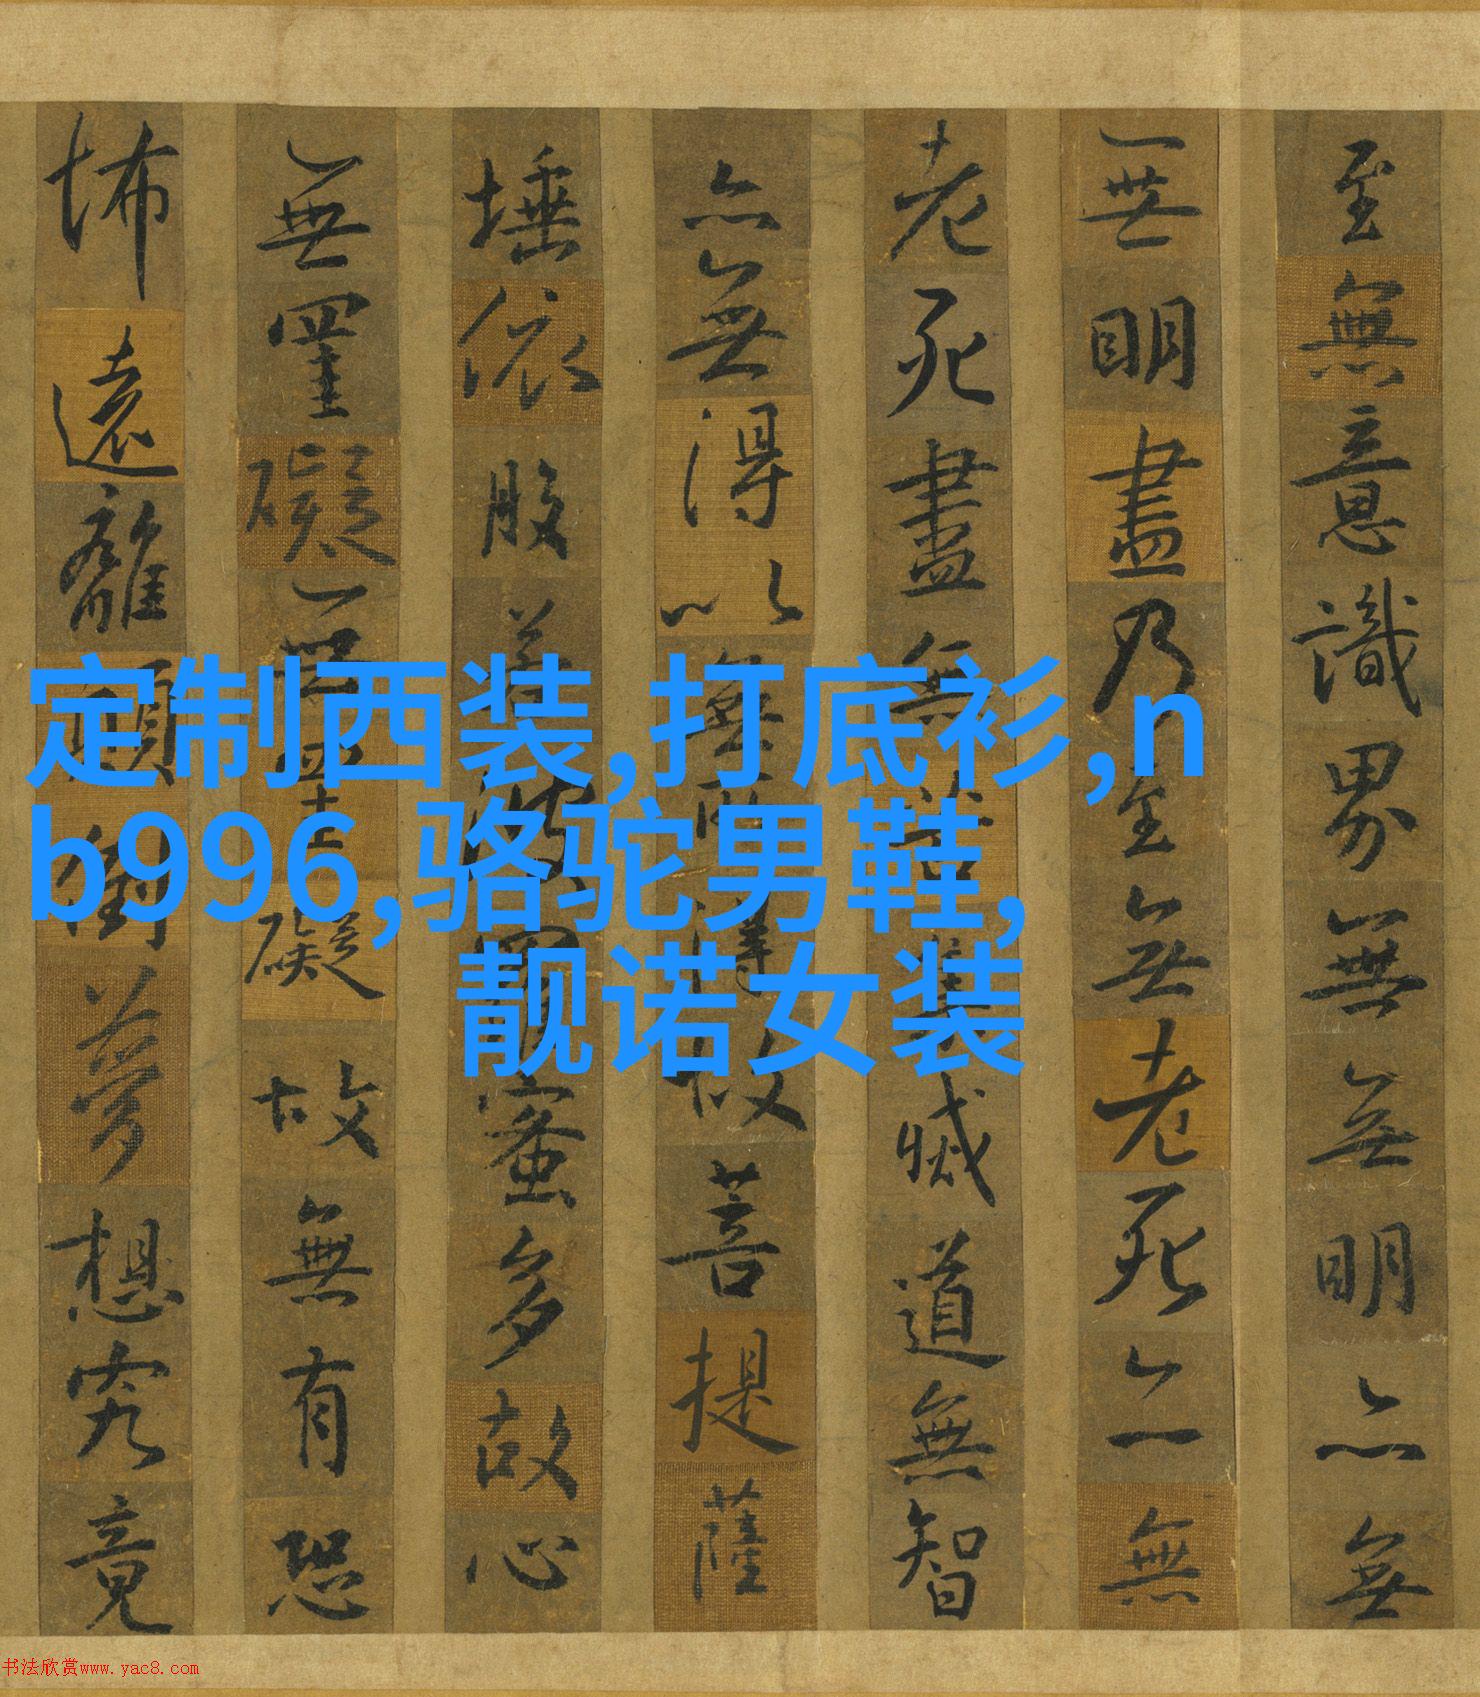 至無意識界無無明亦無
無明盡乃至無老死亦無
老死盡無苦集滅道無智
亦無得以無所得故菩提薩
埵依般若波羅蜜多故心
無罣礙無罣礙故無有恐
怖遠離顛倒夢想究竟
定制西装,打底衫,n
b996,骆驼男鞋,
靓诺女装
书法欣赏www.yac8.com